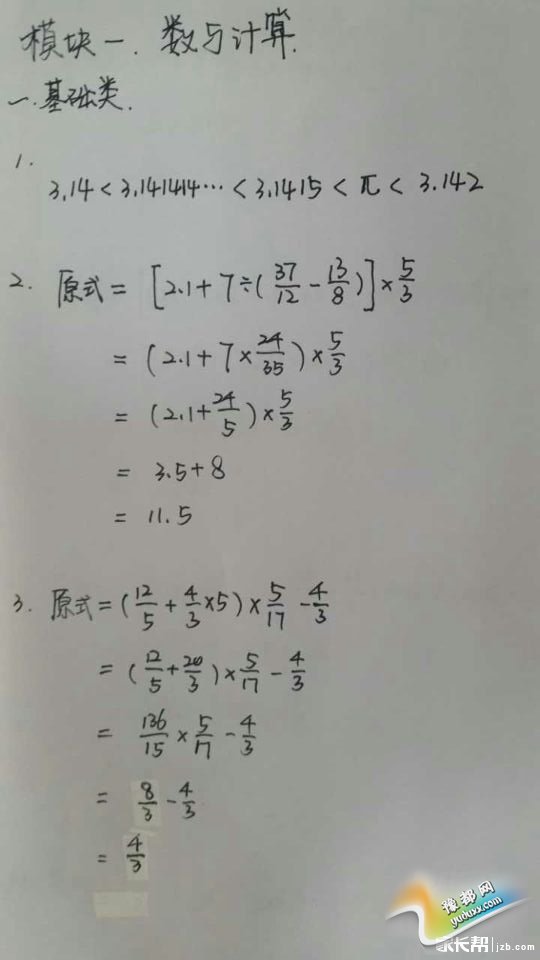 模块一. 数与计算.
一.基础类.
1.
3.14 < 3.141414… < 3.1415 < π < 3.142
2. 原式 = [2.1 + 7 ÷ (37/12 - 13/8)] × 5/3
= (2.1 + 7 × 24/35) × 5/3
= (2.1 + 24/5) × 5/3
= 3.5 + 8
= 11.5
3. 原式 = (12/5 + 4/3 × 5) × 5/17 - 4/3
= (12/5 + 20/3) × 5/17 - 4/3
= 136/15 × 5/17 - 4/3
= 8/3 - 4/3
= 4/3
豫都网
yuduxx.com
家长帮|jzb.com